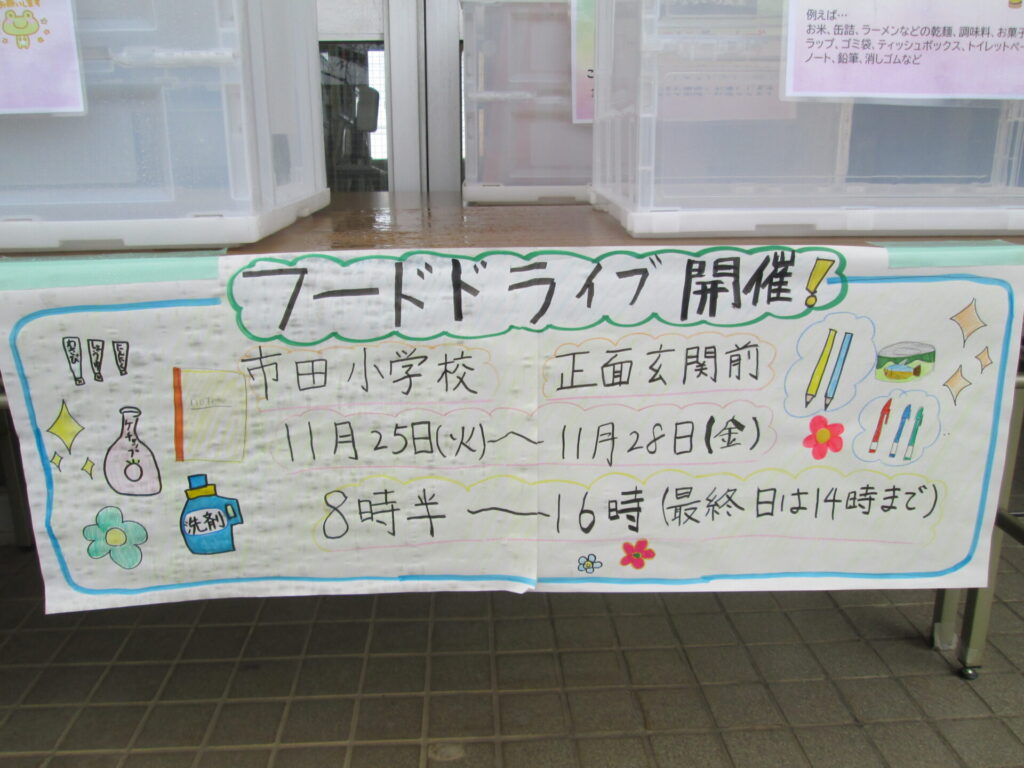 お願いします
例えば…
お米、缶詰、ラーメンなどの乾麺、調味料、お菓子
ラップ、ゴミ袋、ティッシュボックス、トイレットペー
ノート、鉛筆、消しゴムなど
フードドライブ開催!
市田小学校 正面玄関前
11月25日(火)〜11月28日(金)
8時半〜16時(最終日は14時まで)
わさび
ケチャップ
洗剤